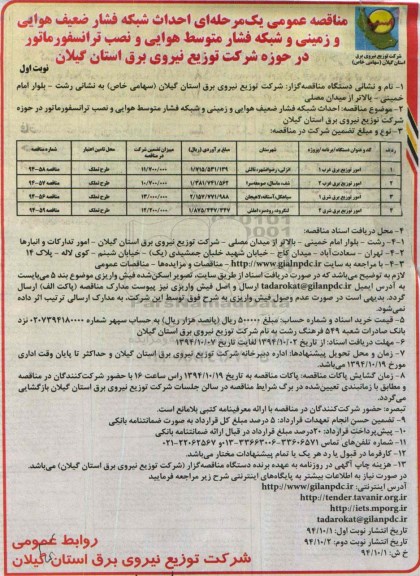 مناقصه عمومی یک‌مرحله‌ای احداث شبکه فشار ضعیف هوایی
و زمینی و شبکه فشار متوسط هوایی و نصب ترانسفورماتور
در حوزه شرکت توزیع نیروی برق استان گیلان
شرکت توزیع نیروی برق
استان گیلان (سهامی خاص)
نوبت اول
۱- نام و نشانی دستگاه مناقصه‌گزار: شرکت توزیع نیروی برق استان گیلان (سهامی خاص) به نشانی رشت - بلوار امام
خمینی - بالاتر از میدان مصلی
۲- موضوع مناقصه: احداث شبکه فشار ضعیف هوایی و زمینی و شبکه فشار متوسط هوایی و نصب ترانسفورماتور در حوزه
شرکت توزیع نیروی برق استان گیلان
۳- نوع و مبلغ تضمین شرکت در مناقصه:
ردیف کد و عنوان دستگاه/برنامه/پروژه شهرستان مبلغ برآوردی (ریال) میزان تضمین شرکت در مناقصه محل تامین اعتبار شماره مناقصه
۱ امور توزیع برق غرب ۱ طرح تملک ۹۴-۵۸
۲ امور توزیع برق غرب ۲ طرح تملک ۹۴-۵۹
۳ امور توزیع برق شرق ۱ طرح تملک ۹۴-۵۶
۴ امور توزیع برق شرق ۲ طرح تملک ۹۴-۵۷
۴- محل دریافت اسناد مناقصه:
۴-۱- رشت - بلوار امام خمینی - بالاتر از میدان مصلی - شرکت توزیع نیروی برق استان گیلان - امور تدارکات و انبارها
۴-۲- تهران - سعادت آباد - میدان کاج - خیابان شهید خلبان جمشیدی (یک) - خیابان شبنم - کوی لاله - پلاک ۱۴
۴-۳- با مراجعه به سایت http://www.gialnpdc.ir - مناقصات و مزایده‌ها - مناقصات عمومی
لازم به توضیح می‌باشد که در صورت دریافت اسناد از طریق سایت، تصویر اسکن‌شده فیش واریزی موضوع بند ۵ می‌بایست
به آدرس ایمیل tadarokat@gilanpdc.ir ارسال و اصل فیش واریزی نیز پیوست مدارک مناقصه (پاکت الف) ارسال
گردد. بدیهی است در صورت عدم وصول فیش واریزی به شرح فوق توسط این شرکت، به مدارک ارسالی ترتیب اثر داده
نمی‌شود.
۵- قیمت خرید اسناد و شماره حساب: مبلغ ۵۰۰۰۰۰ ریال (پانصد هزار ریال) به حساب سپهر شماره ۰۲۰۷۳۹۴۱۸۰۰۰۰ نزد
بانک صادرات شعبه ۵۴۹ فرهنگ رشت به نام شرکت توزیع نیروی برق استان گیلان
۶- مهلت دریافت اسناد: از تاریخ ۱۳۹۴/۱۰/۰۲ لغایت تاریخ ۱۳۹۴/۱۰/۰۷
۷- زمان و محل تحویل پیشنهادها: اداره دبیرخانه شرکت توزیع نیروی برق استان گیلان و حداکثر تا پایان وقت اداری
مورخ ۱۳۹۴/۱۰/۱۹ می‌باشد.
۸- زمان گشایش پاکات مناقصه: پاکات مناقصه به تاریخ ۱۳۹۴/۱۰/۱۹ راس ساعت ۱۶ با حضور شرکت‌کنندگان در مناقصه
و مطابق با زمانبندی تعیین‌شده در برگ شرایط مناقصه در سالن جلسات شرکت توزیع نیروی برق استان گیلان بازگشایی
می‌گردد.
تبصره: حضور شرکت‌کنندگان در مناقصه با ارائه معرفینامه کتبی بلامانع است.
۹- تضمین حسن انجام تعهدات قرارداد: ۵ درصد مبلغ کل قرارداد به صورت ضمانتنامه بانکی
۱۰- پیش‌پرداخت قرارداد: ۲۰درصد مبلغ قرارداد در قبال ارائه ضمانتنامه بانکی
۱۱- شماره تلفن‌های تماس ۳۳۶۰۶۵۷۱-۳۳۶۶۳۰۰۶-۰۱۳و ۲۲۰۶۲۵۶۷-۰۲۱
۱۲- کارفرما در قبول یا رد هر یک یا تمام پیشنهادات مختار می‌باشد.
۱۳- هزینه چاپ آگهی در روزنامه به عهده برنده دستگاه مناقصه‌گزار (شرکت توزیع نیروی برق استان گیلان) می‌باشد.
در صورت نیاز به اطلاعات بیشتر به پایگاه‌های اینترنتی شرح زیر مراجعه فرمایید
آدرس اینترنتی: http://www/gilanpdc.ir
http://tender.tavanir.org.ir
http://iets.mporg.ir
tadarokat@gilanpdc.ir
تاریخ انتشار نوبت اول: ۹۴/۱۰/۱
تاریخ انتشار نوبت دوم: ۹۴/۱۰/۲
خ ش: ۹۴/۱۰/۱
روابط عمومی
شرکت توزیع نیروی برق استان گیلان